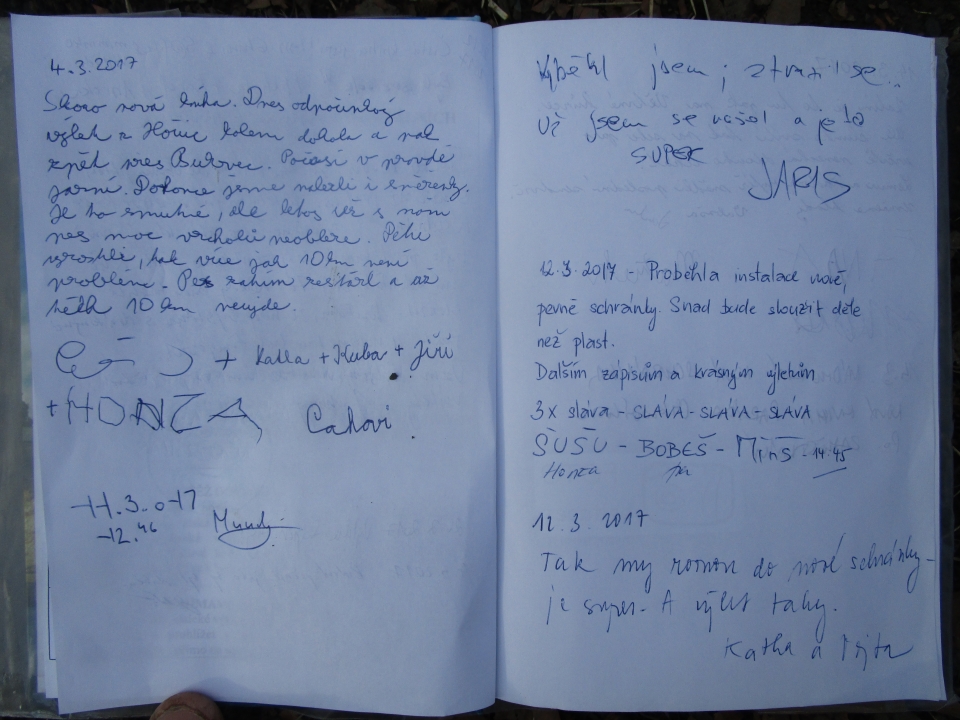 4.3.2017
Skoro nová kniha. Dnes odpočinkový
výlet z Hořic kolem dokola a pak
zpět přes Butovec. Počasí v pravdě
jarní. Dokonce jsme nalezli i sněženky.
Je to smutné, ale letos už s námi
pes moc vrcholů neobleze. Děti
vyrostli, tak více jak 10 km není
problém. Pes zatím zestárl a už
těch 10 km neujde.
+ Katka + Kuba + Jiří
+ HONZA Cahovi.
11.3.2017
12.46
Vyběhl jsem; ztratil se...
Už jsem se našel a je to
SUPER
JARIS
12.3.2017 - Proběhla instalace nové,
pevné schránky. Snad bude sloužit déle
než plast.
Dalším zápisům a krásným výletům
3x sláva - SLÁVA - SLÁVA - SLÁVA
ŠUŠU - BOBEŠ - Minš - 14.45
Honza já
12.3.2017
Tak my rovnou do nové schránky -
je super. A výlet taky.
Katka a Vojta